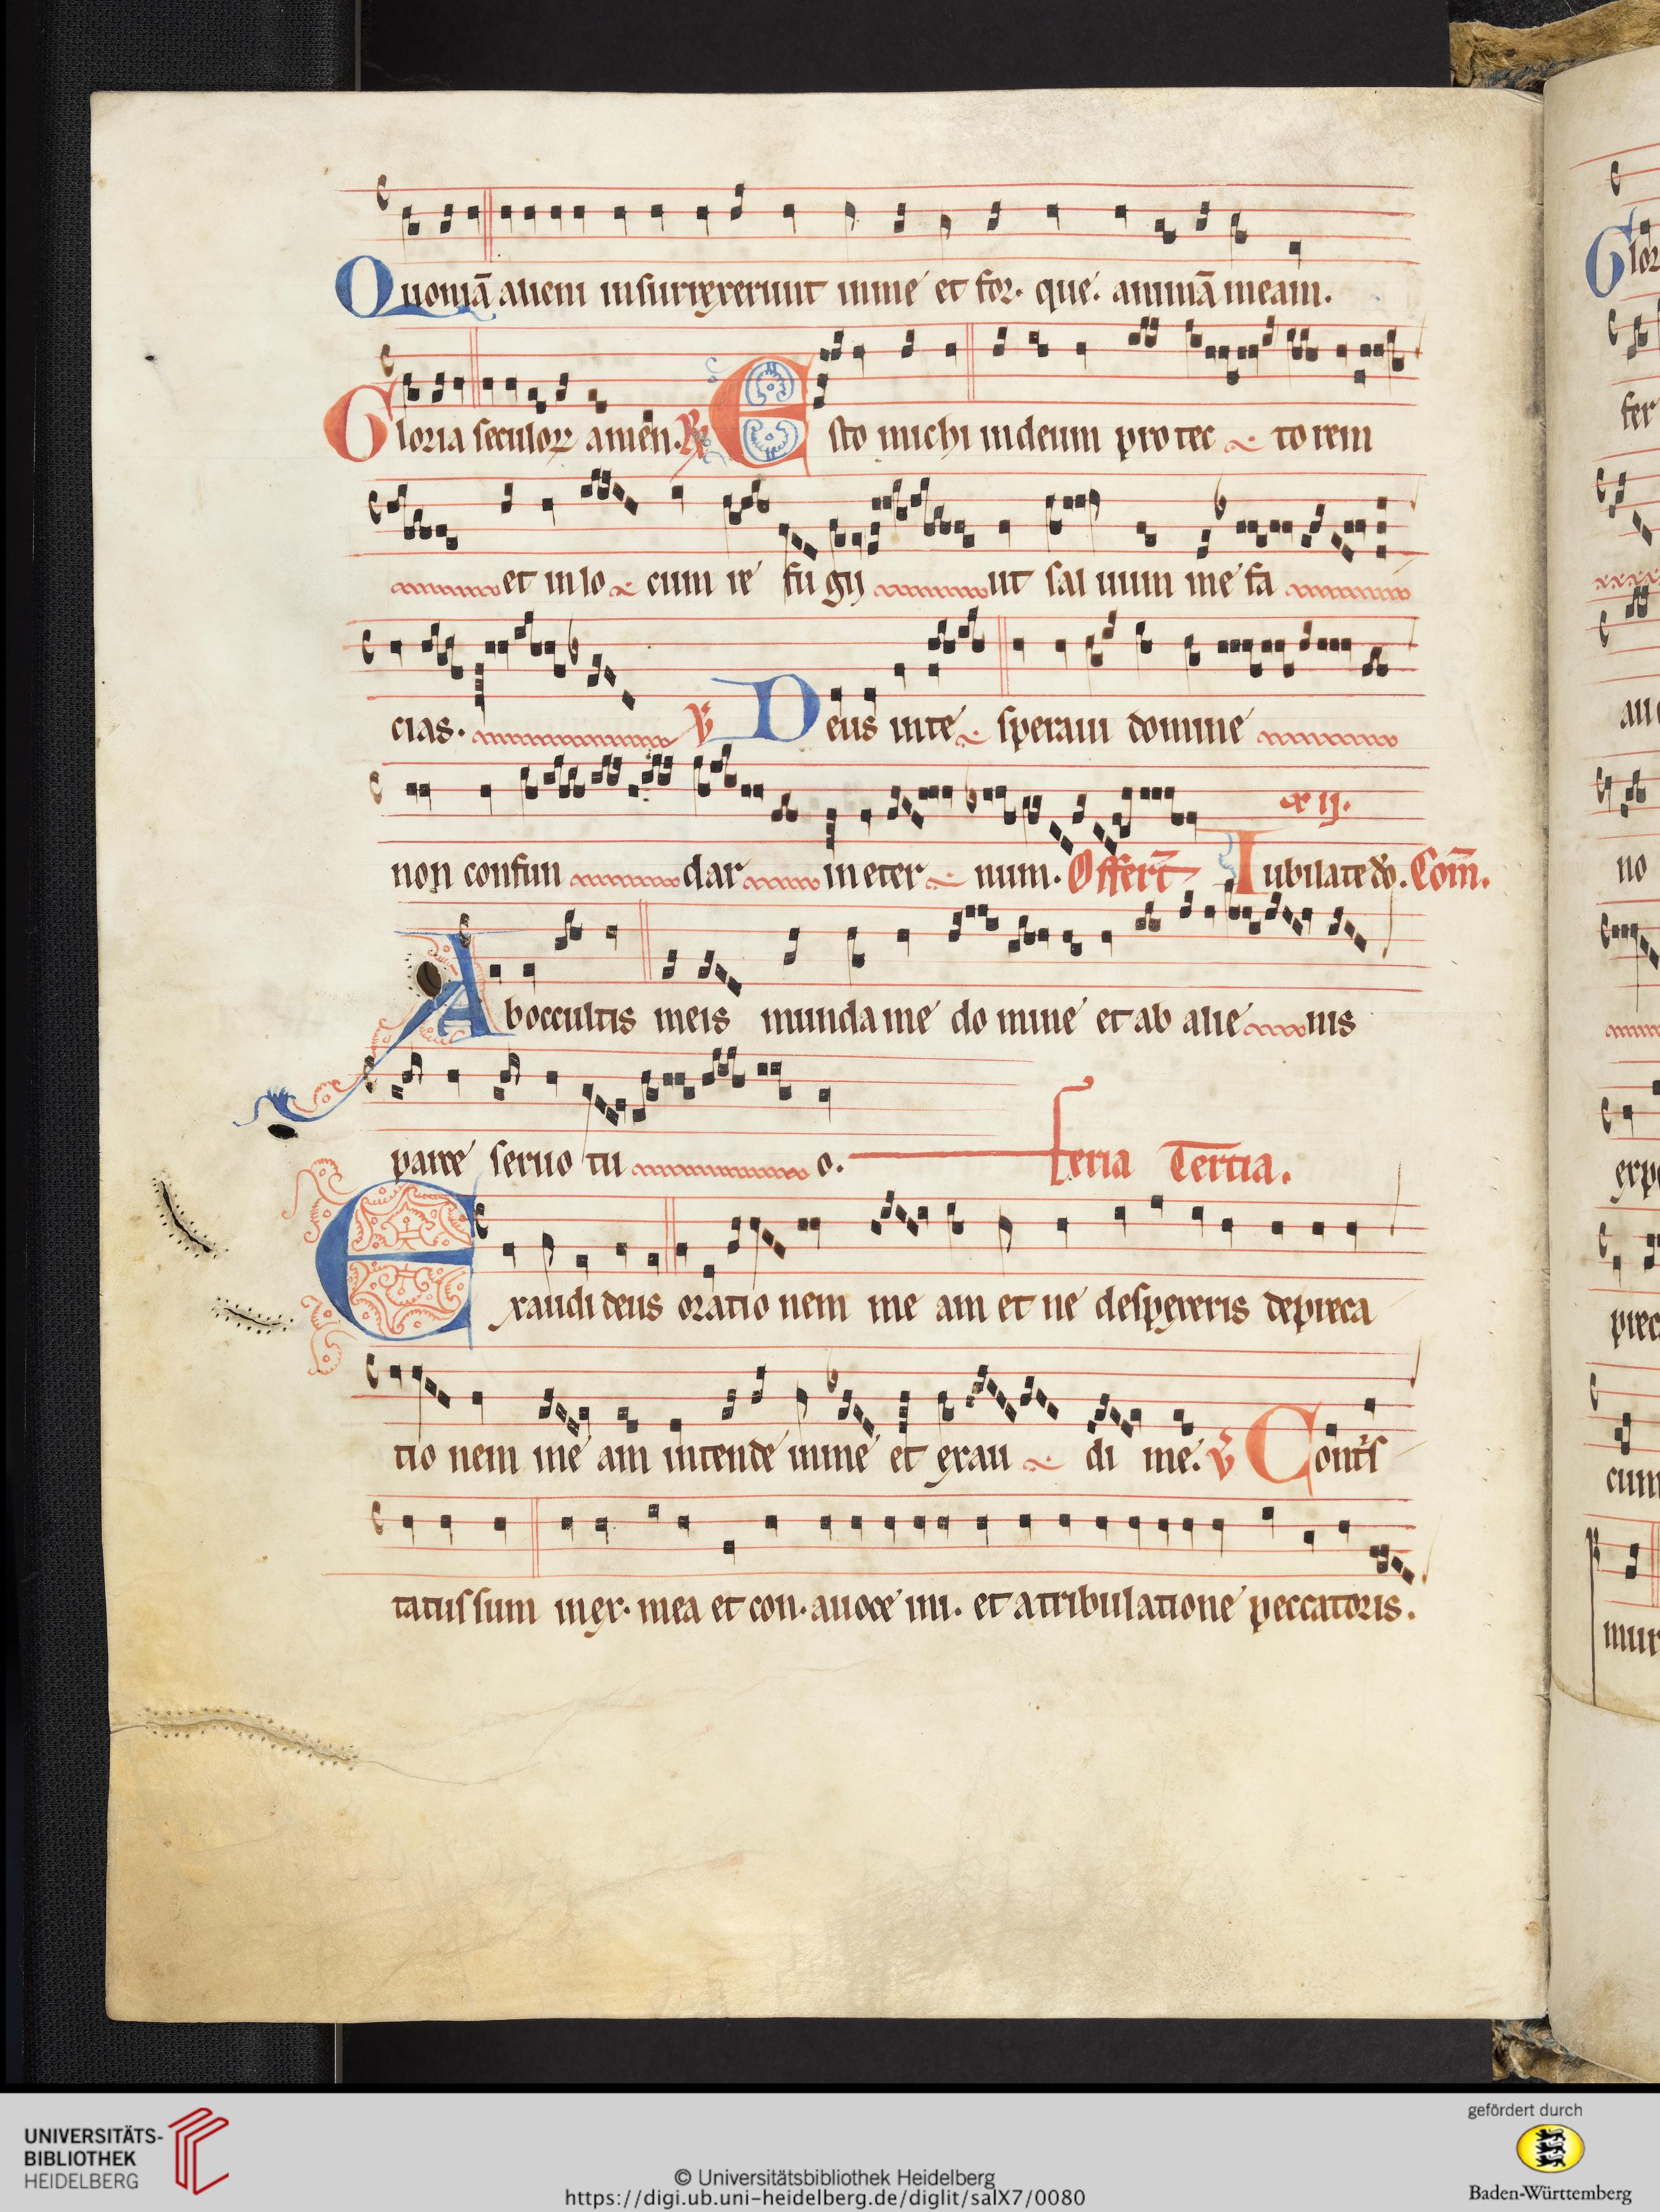 Quoniā alieni insurrexerunt in me et for. que. animā meam.
Gloria seculoꝝ amen. R Esto michi in deum pro tec to rem
et in lo cum re fu gij ut sal uum me fa
cias. V Deus in te speraui domine
non confun dar in eter num. Offert Iubilate dō. Com̄.
x ij.
Ab occultis meis munda me do mine et ab alie nis
parce seruo tu o. Feria Tertia.
Exaudi deus oratio nem me am et ne despexeris depreca
tio nem me am intende in me et exau di me. V Contͥs
tatus sum in ex. mea et con. a uoce ini. et a tribulatione peccatoris.
Glor
fer
au
no
exp
prec
cum
mun
UNIVERSITÄTS-
BIBLIOTHEK
HEIDELBERG
© Universitätsbibliothek Heidelberg
https://digi.ub.uni-heidelberg.de/diglit/salX7/0080
gefördert durch
Baden-Württemberg